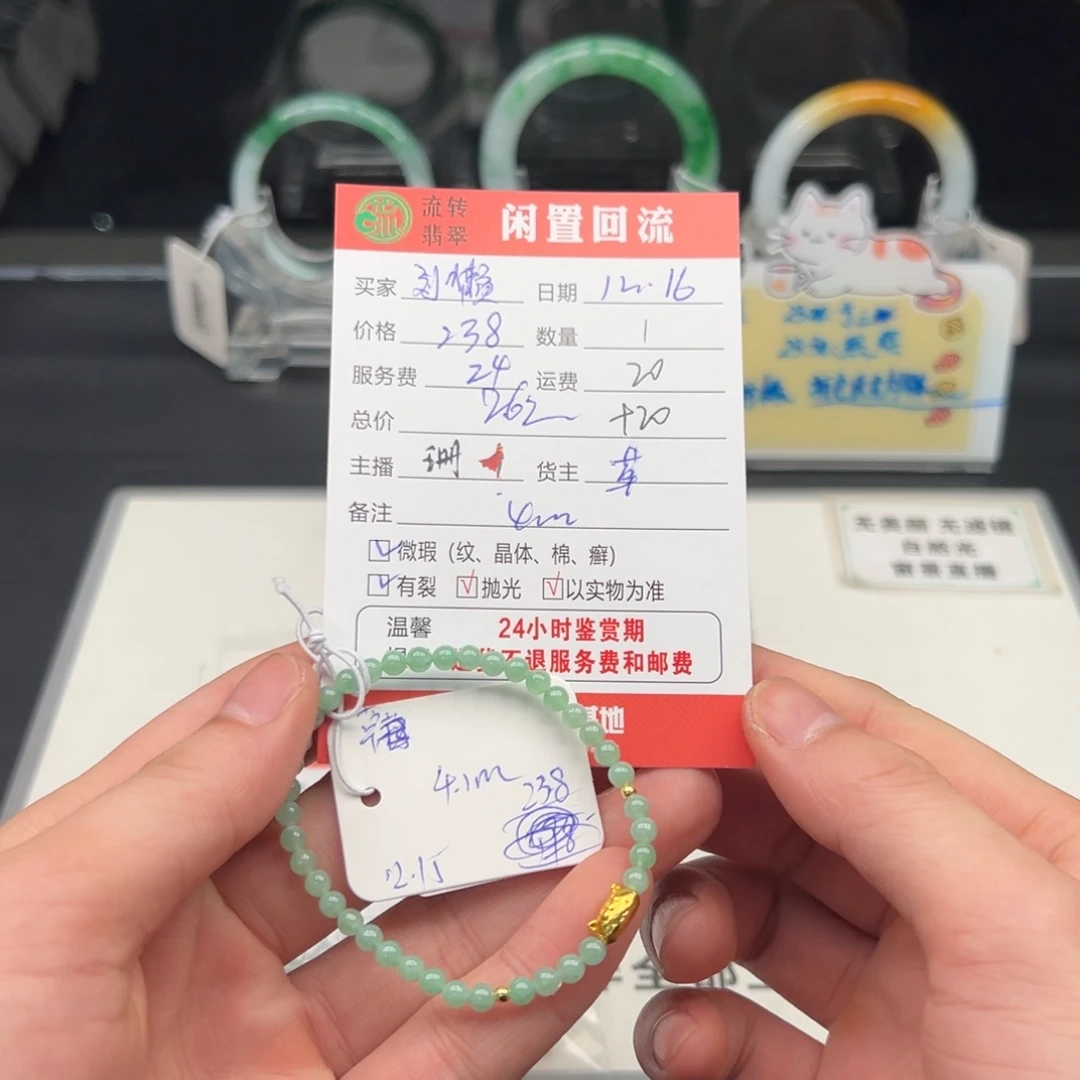 流转
翡翠
闲置回流
买家 刘懒 日期 12.16
价格 238 数量 1
服务费 24 运费 20
总价 262 +20
主播 珊 货主 草
备注 4m
微瑕（纹、晶体、棉、癣）
有裂 抛光 以实物为准
温馨 24小时鉴赏期
不退服务费和邮费
基地
4.1m
238
12.15
无美颜 无滤镜
自然光
窗景直播